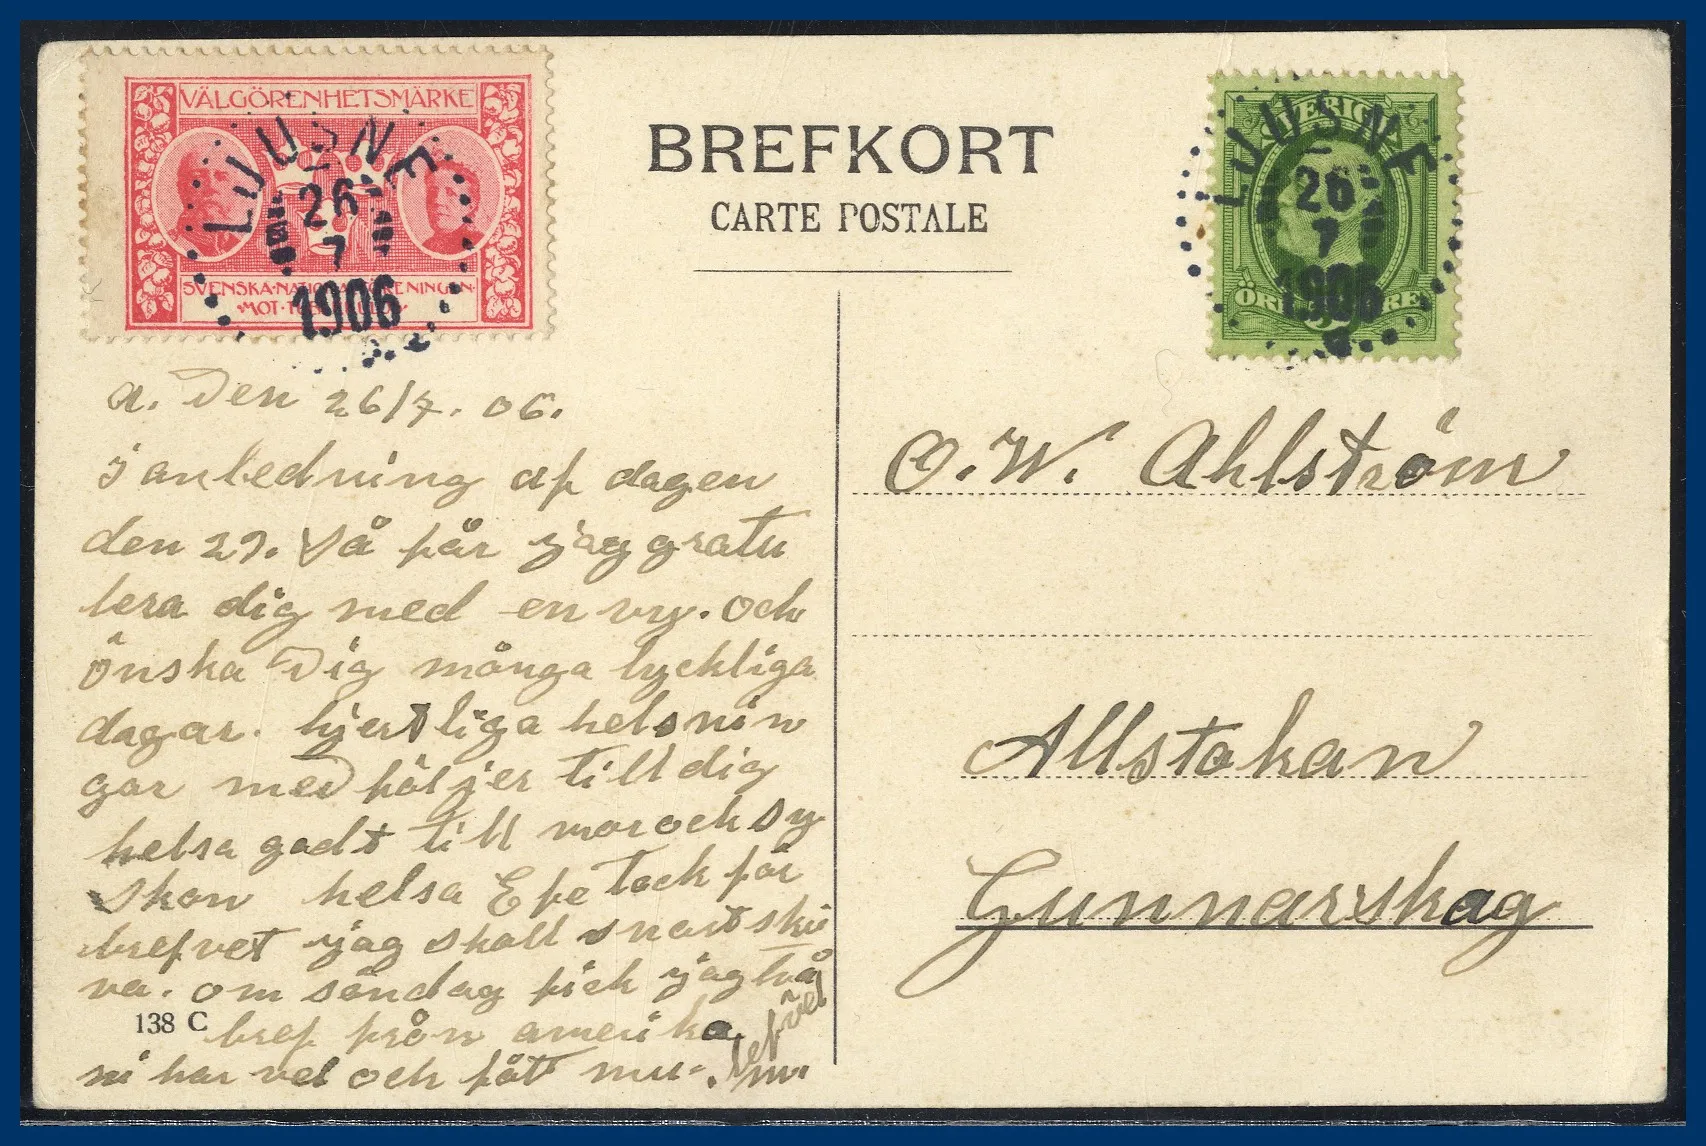 VÄLGÖRENHETSMÄRKE
SVENSKA·NATIONALFÖRENINGEN·
·MOT·TUBERKULOS·
LJUSNE
26
7
1906
BREFKORT
CARTE POSTALE
SVERIGE
ÖRE 5 ÖRE
LJUSNE
26
7
1906
a. Den 26/7. 06.
i anledning af dagen
den 29. Så får jag gratu
lera dig med en vy. och
önska Dig många lyckliga
dagar. hjertliga helsnin
gar med följer till dig
helsa godt till mor och sy
skon helsa E fe tack för
brefvet jag skall snart skri
va. om söndag fick jag två
138 C
bref från amerika
ni har vel och fått nu-.
lef väl
O. W. Ahlström
Allstakan
Gunnarskog